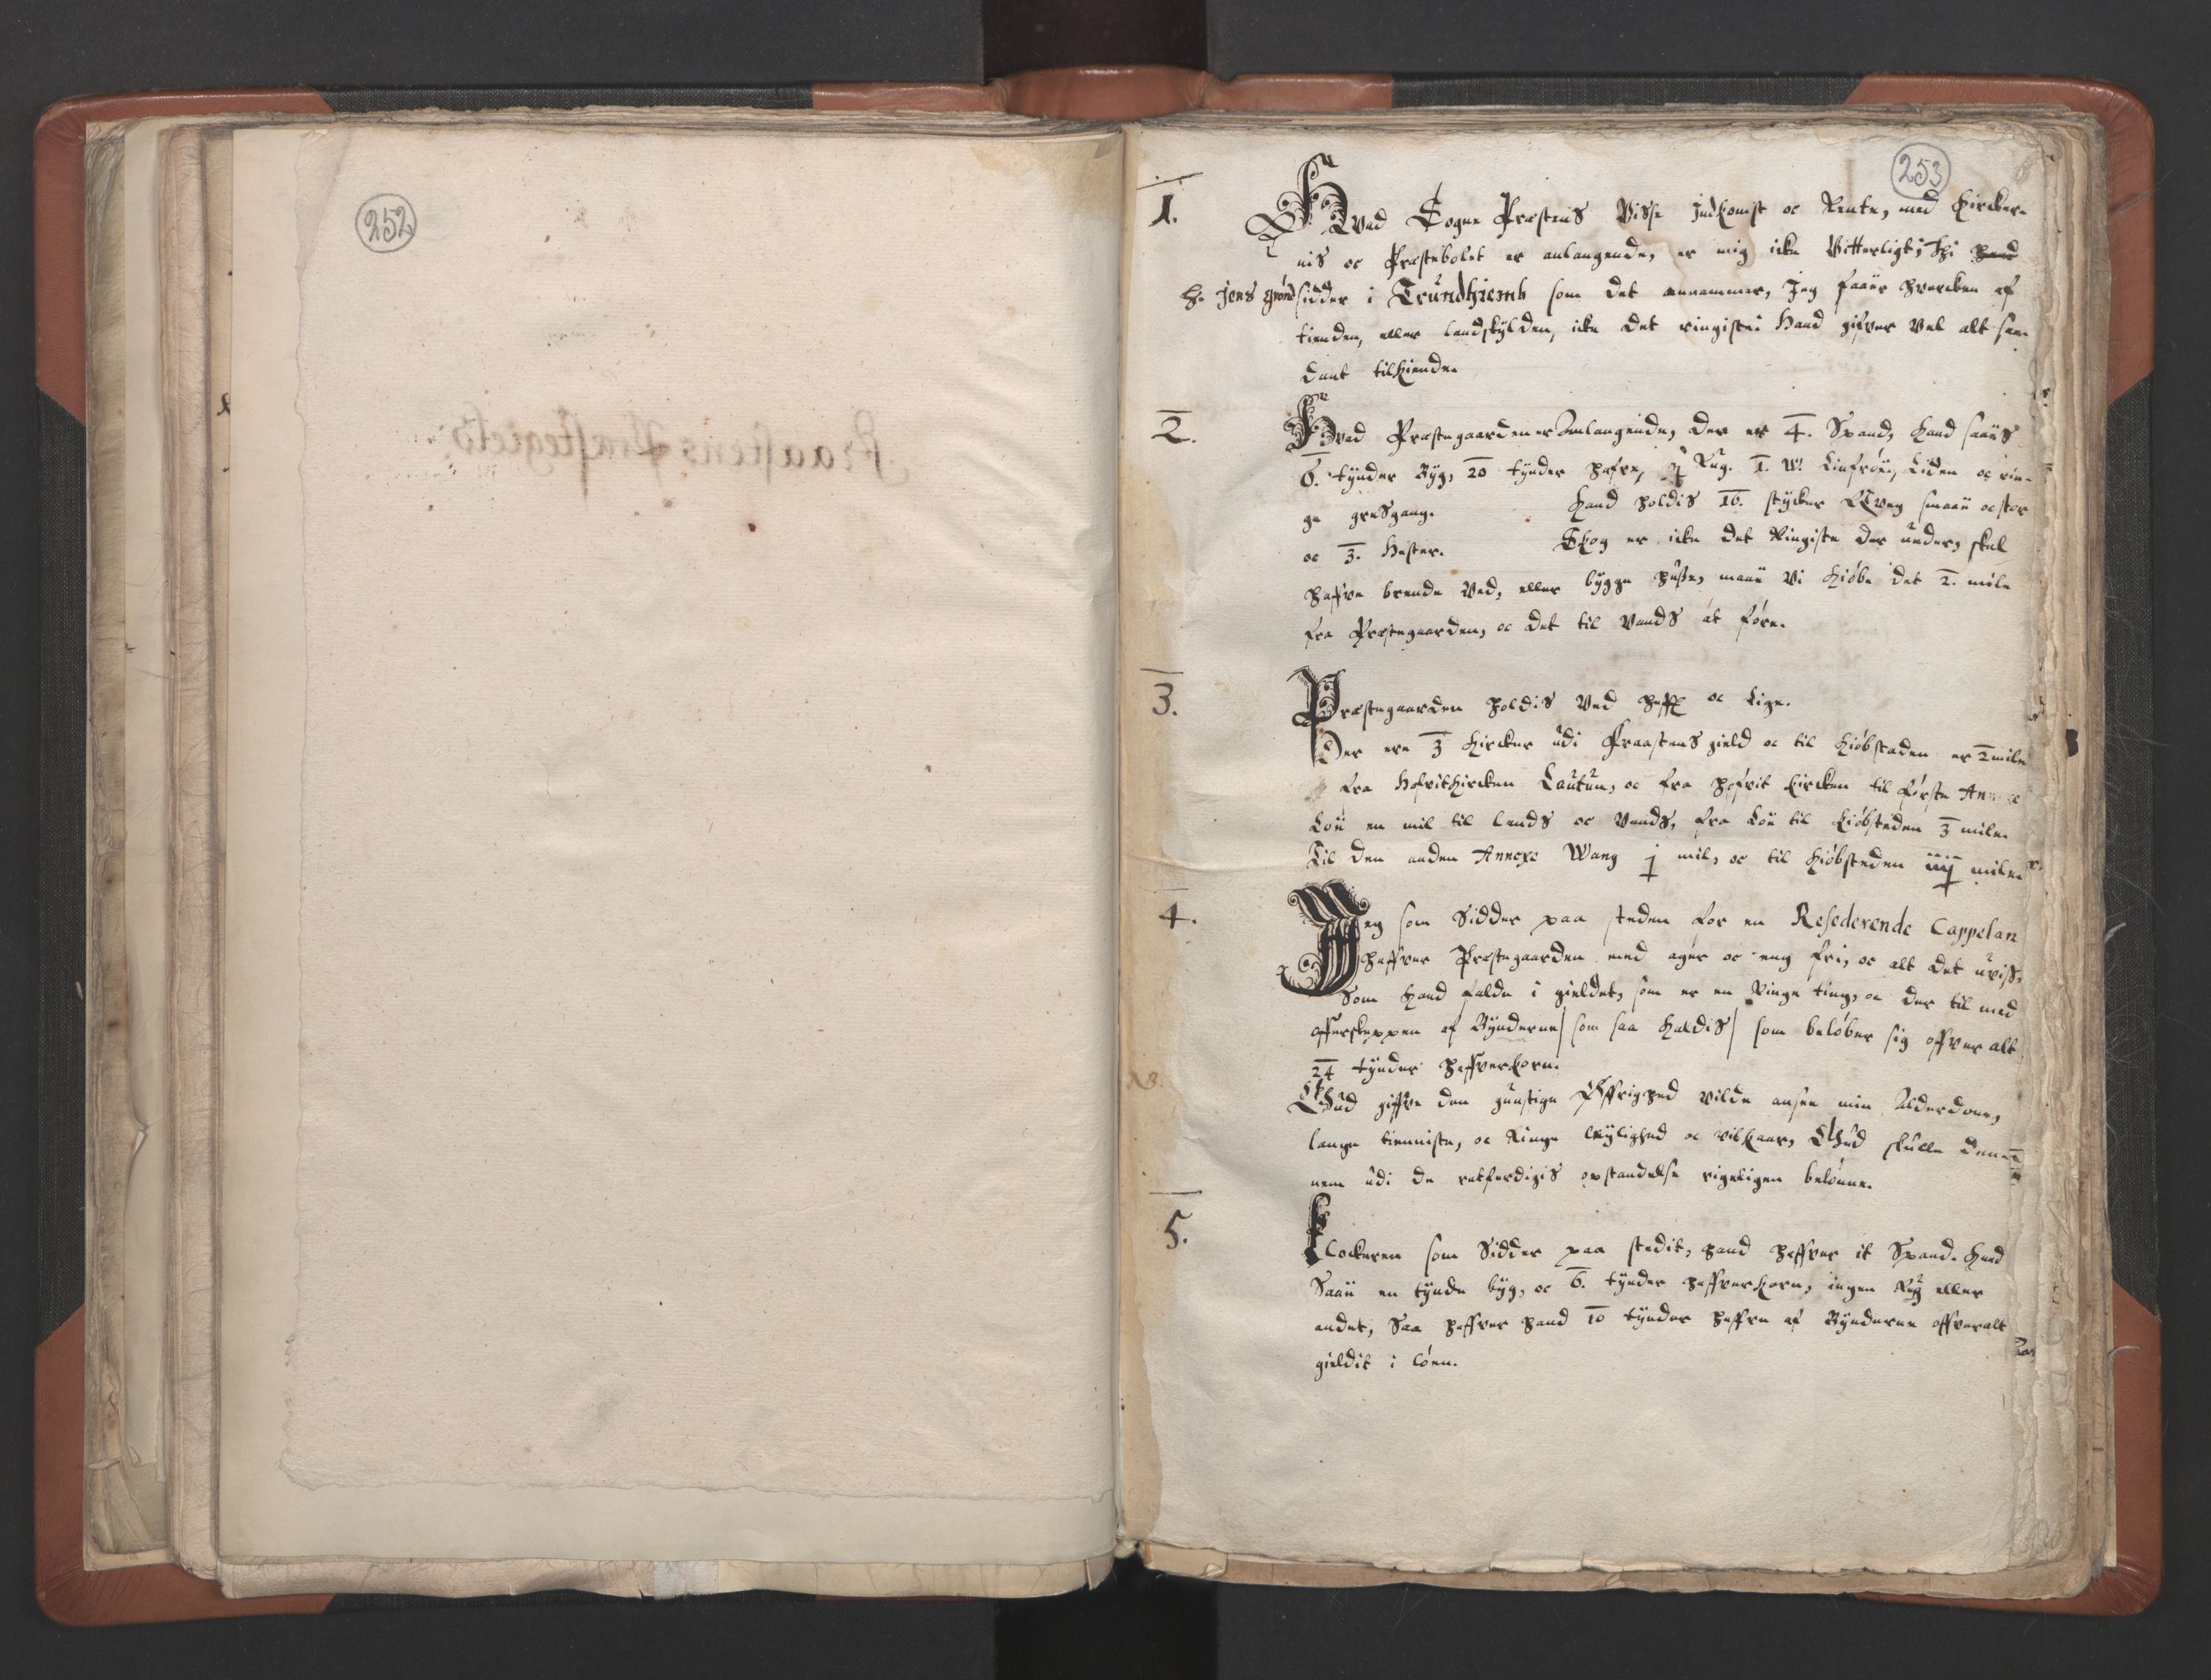 252
253
1.
Hvad Sogne Præstens Visse Indkomst oc Rente, med Kircker-
nis oc Præstebolet er anlangende, er mig icke Vitterligt, thi hand
H. Jens sidder i Trundhiemb som det annammer, Jeg faaer hvercken af
tienden, eller landskylden, icke det ringiste: Hand gifver Vel alt saa-
dant tilkiende.
2.
Hvad Præstegaarden er Anlangende, der er 4. Spand, kand saaes
6. tynder Byg, 20 tynder hafre, Rug. 1. W. Linfröe, Liden oc rin-
ge gresgang. Kand holdis 16. stycker Qveg smaae oc stor
oc 3. Hester. Skog er icke det Ringiste der under, skal
haffve brende Ved, eller bygge huse, maae Vi kiöbe det 2. mile
fra Præstegaarden, oc det til Vands at före.
3.
Præstegaarden holdis Ved heffd oc Lige.
Der ere 3 Kircker udi Fraastens gield oc til kiöbstaden er 2 mile
fra Hofvitkircken Lautun, oc fra hofvit kircken til förste Annexe
Löu en mil til Lands oc Vands, fra Löu til kiöbsteden 3 mile.
Til den anden Annexe Wang j mil, oc til kiöbsteden iiij mile
4.
Jeg som Sidder paa steden for en Resederende Cappelan
haffver Præstegaarden med ager oc eng fri, oc alt det uviss,
Som kand falde i gieldet, som er en Ringe ting, oc der til med
offerskeppen af Bynderne som saa kaldis som belöber sig offver alt
24 tynder haffverkorn.
NB.
Gud giffve den gunstige Öffrighed vilde ansee min Alderdom,
lange tienniste, oc Ringe leylighed oc vilkaar, Gud skulle dennem
nem udi de retferdigis opstandelse rigeligen belönne.
5.
Klockeren som Sidder paa stedit, hand haffver it Spand. Kand
Saae en tynde byg, oc 6. tynder haffverkorn, ingen Rug eller
andet, Saa haffver hand 10 tynder haffre af Bynderne offveralt
gieldit i löen.